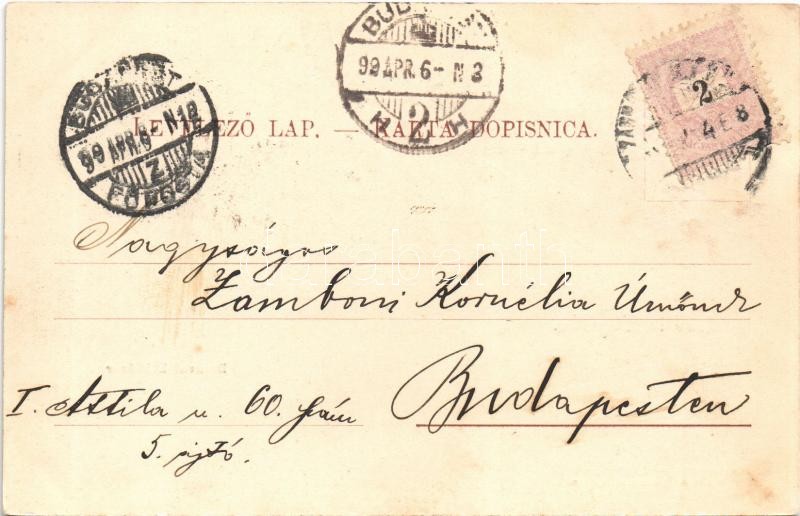 BUDAPEST
99 APR. 6 - N 3
2
BUDAPEST
99 APR. 6 - N 12
Z
FŐPOSTA
2
4 E 8
LEVELEZŐ LAP. — KARTA DOPISNICA.
Nagyságos
Zamboni Kornélia Úrnőnek
Budapesten
I. Attila u. 60. szám
5. ajtó.